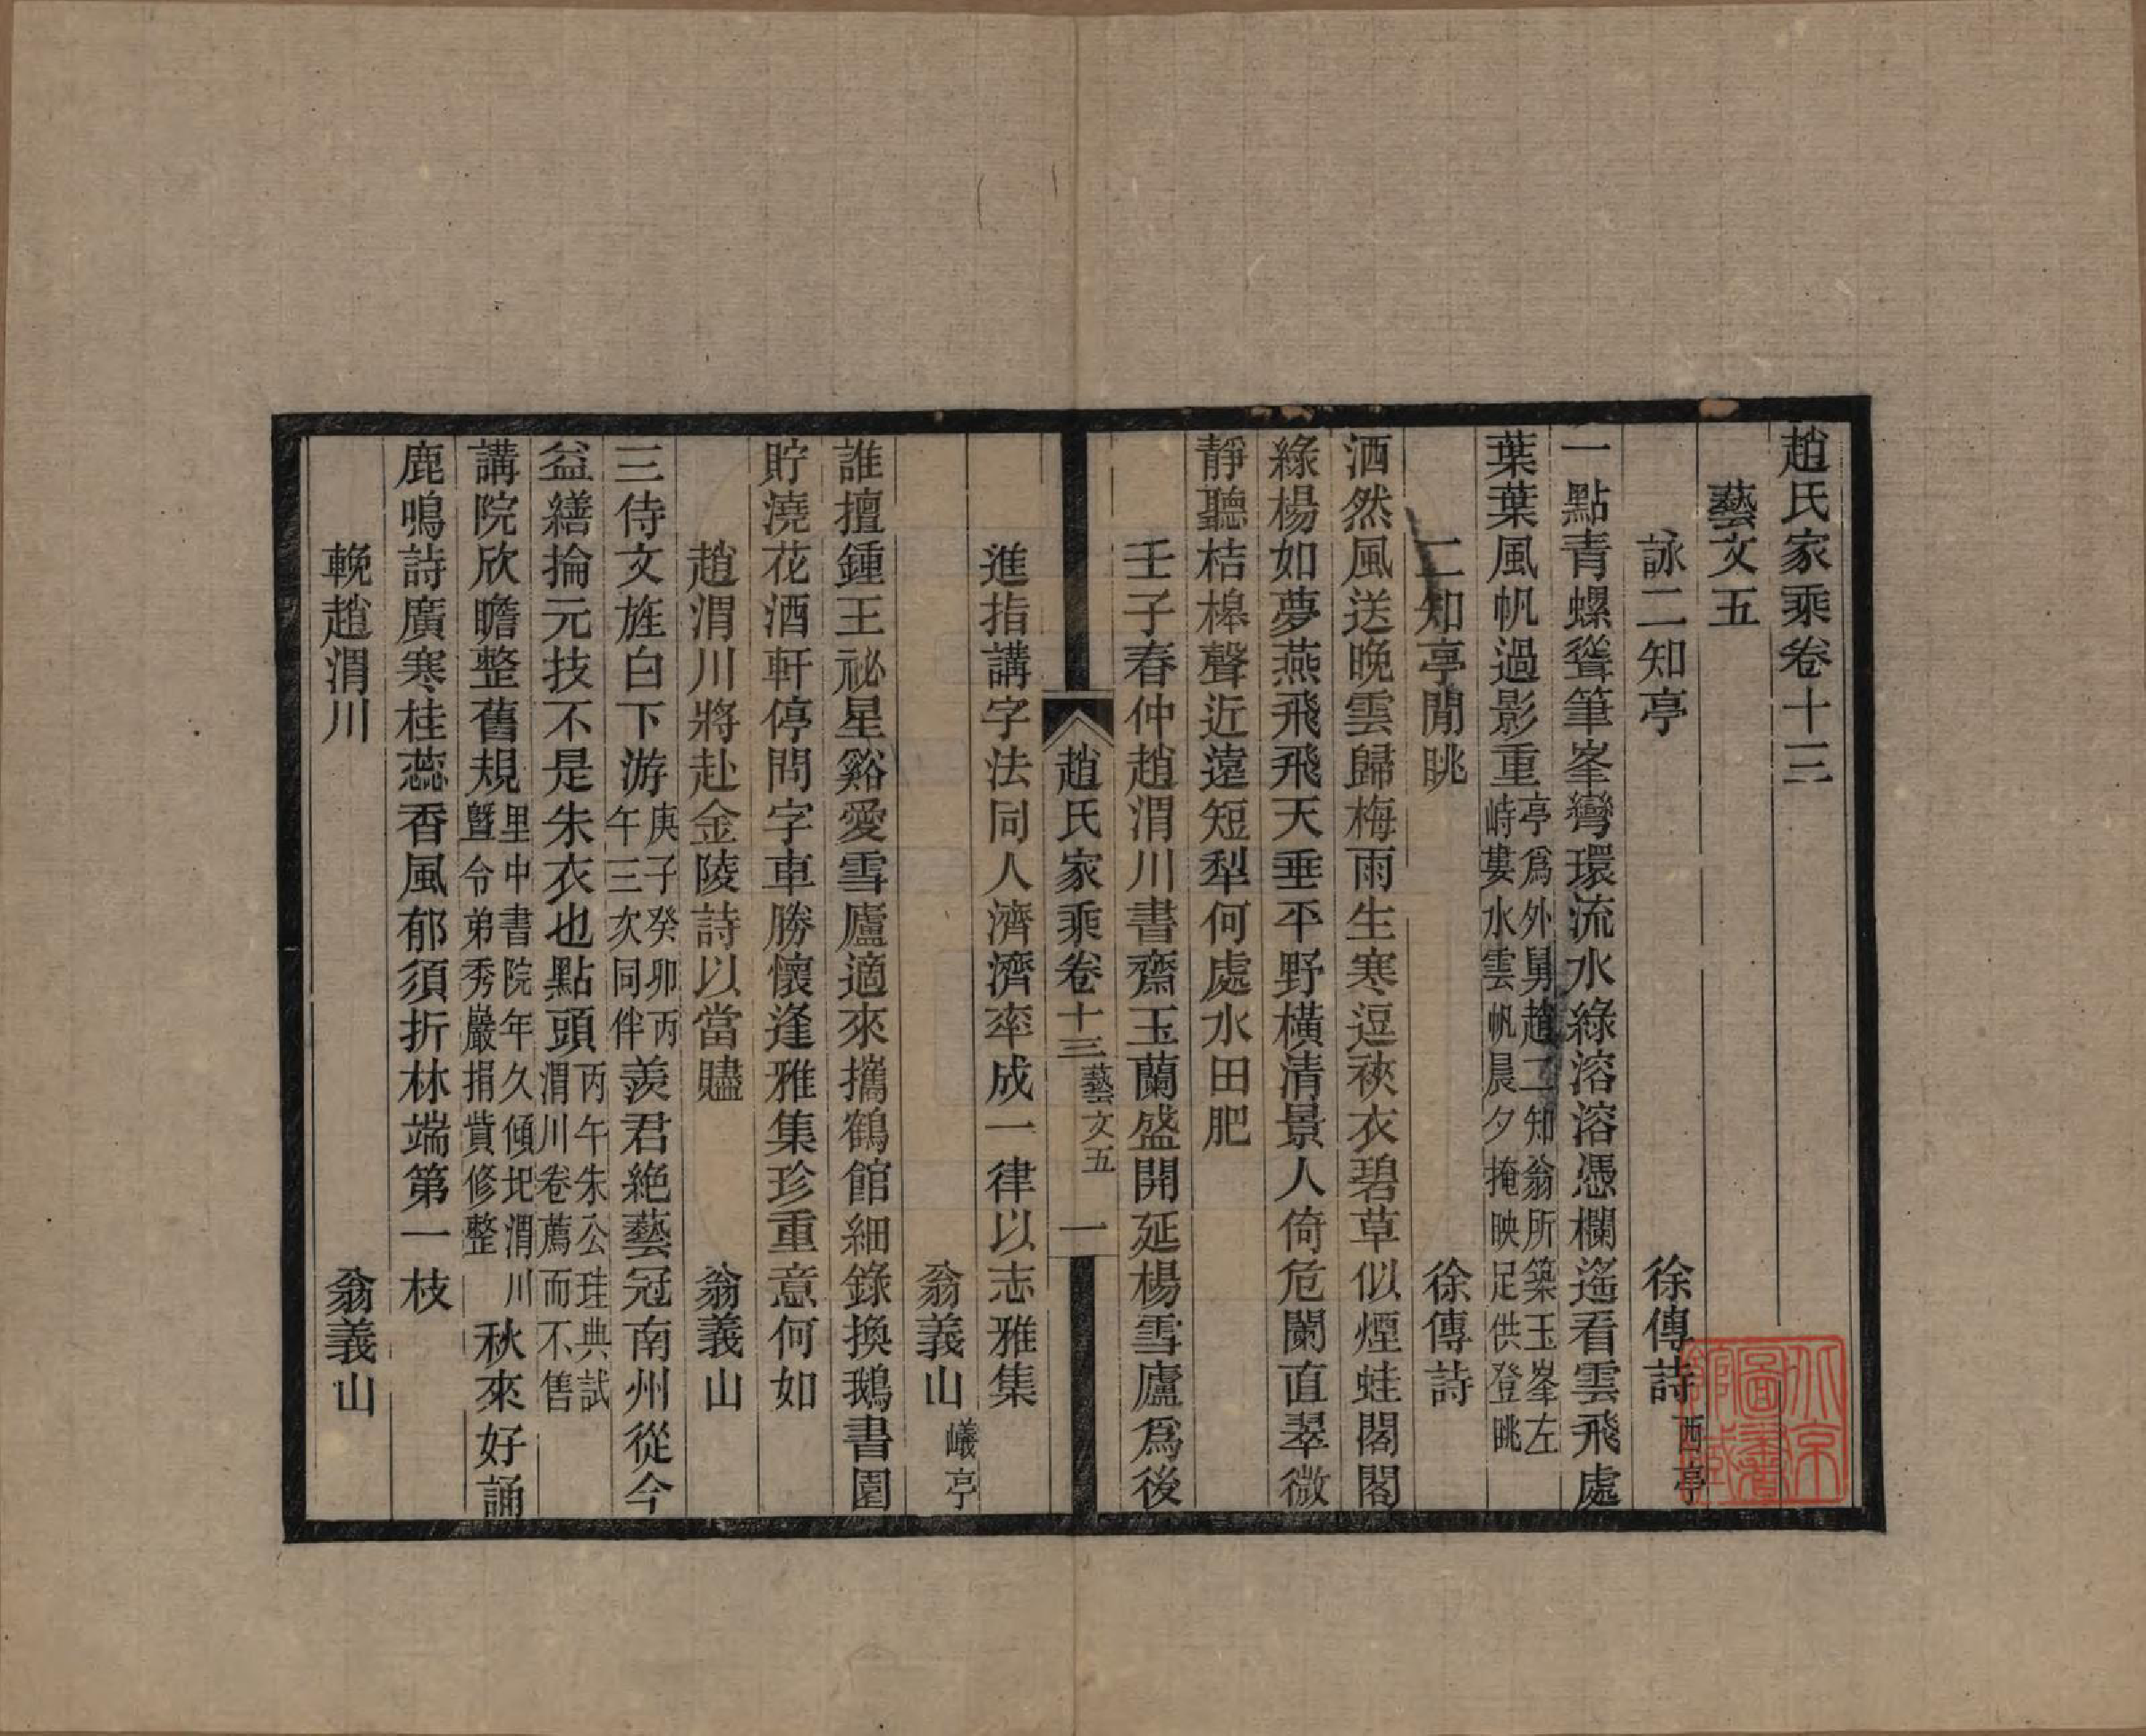 趙氏家乘卷十三
藝文五
詠二知亭 徐傳詩西亭
一點青螺聳筆峯彎環流水綠溶溶憑欄遙看雲飛處
葉葉風帆過影重亭爲外舅趙二知翁所築玉峯左峙婁水雲帆晨夕掩映足供登眺
二知亭閒眺 徐傳詩
洒然風送晚雲歸梅雨生寒逗裌衣碧草似煙蛙閣閣
綠楊如夢燕飛飛天垂平野橫清景人倚危闌直翠微
靜聽桔槔聲近遠短犁何處水田肥
壬子春仲趙渭川書齋玉蘭盛開延楊雪廬爲後
趙氏家乘卷十三藝文五 一
進指講字法同人濟濟率成一律以志雅集
翁義山嶬亭
誰擅鍾王祕星谿愛雪廬適來攜鶴館細錄換鵝書園
貯澆花酒軒停問字車勝懷逢雅集珍重意何如
趙渭川將赴金陵詩以當贐 翁義山
三侍文旌白下游庚子癸卯丙午三次同伴羨君絕藝冠南州從今
益繕掄元技不是朱衣也點頭丙午朱公珪典試渭川卷薦而不售
講院欣瞻整舊規里中書院年久傾圯渭川曁令弟秀巖捐貲修整秋來好誦
鹿鳴詩廣寒桂蕊香風郁須折林端第一枝
輓趙渭川 翁義山
北京圖書館藏